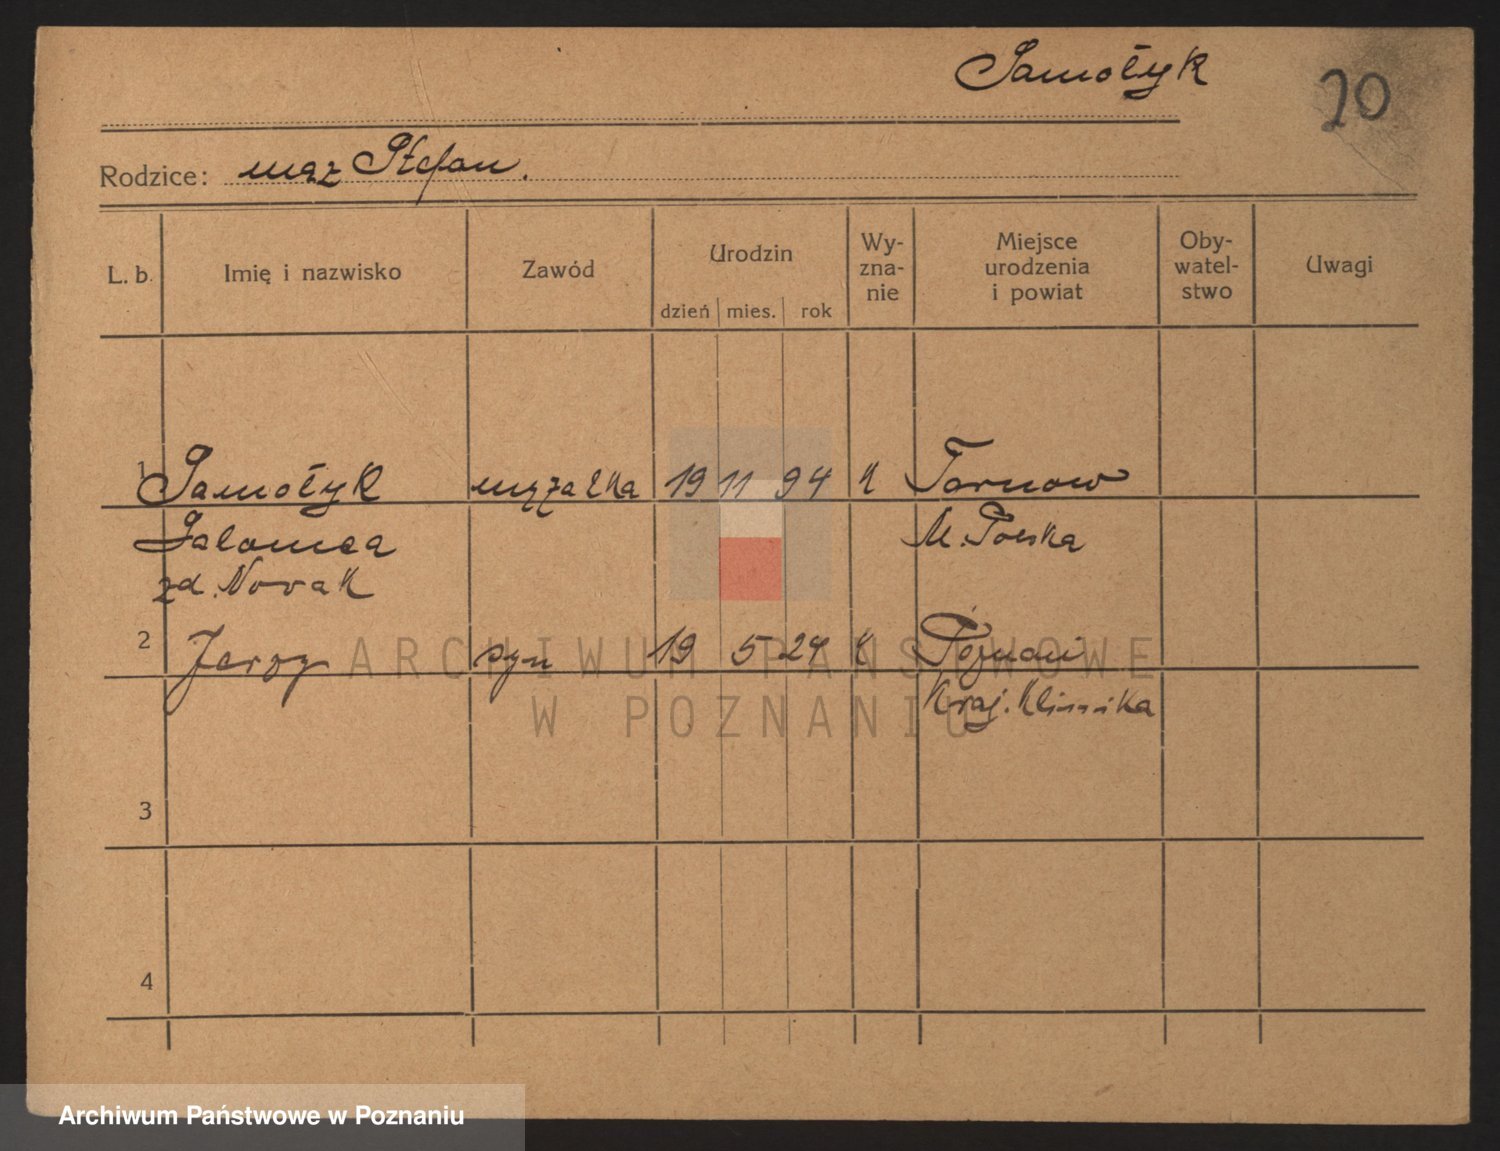 Samołyk
20
Rodzice: mąż Stefan.
L. b. Imię i nazwisko Zawód Urodzin dzień mies. rok Wy-zna-nie Miejsce urodzenia i powiat Oby-watel-stwo Uwagi
1 Samołyk mężatka 19 11 94 K Tarnow
Salomea M. Polska
zd. Novak
2 Jerzy syn 19 5 24 K Poznań
Kraj. Klinika
3
4
ARCHIWUM PAŃSTWOWE
W POZNANIU
Archiwum Państwowe w Poznaniu